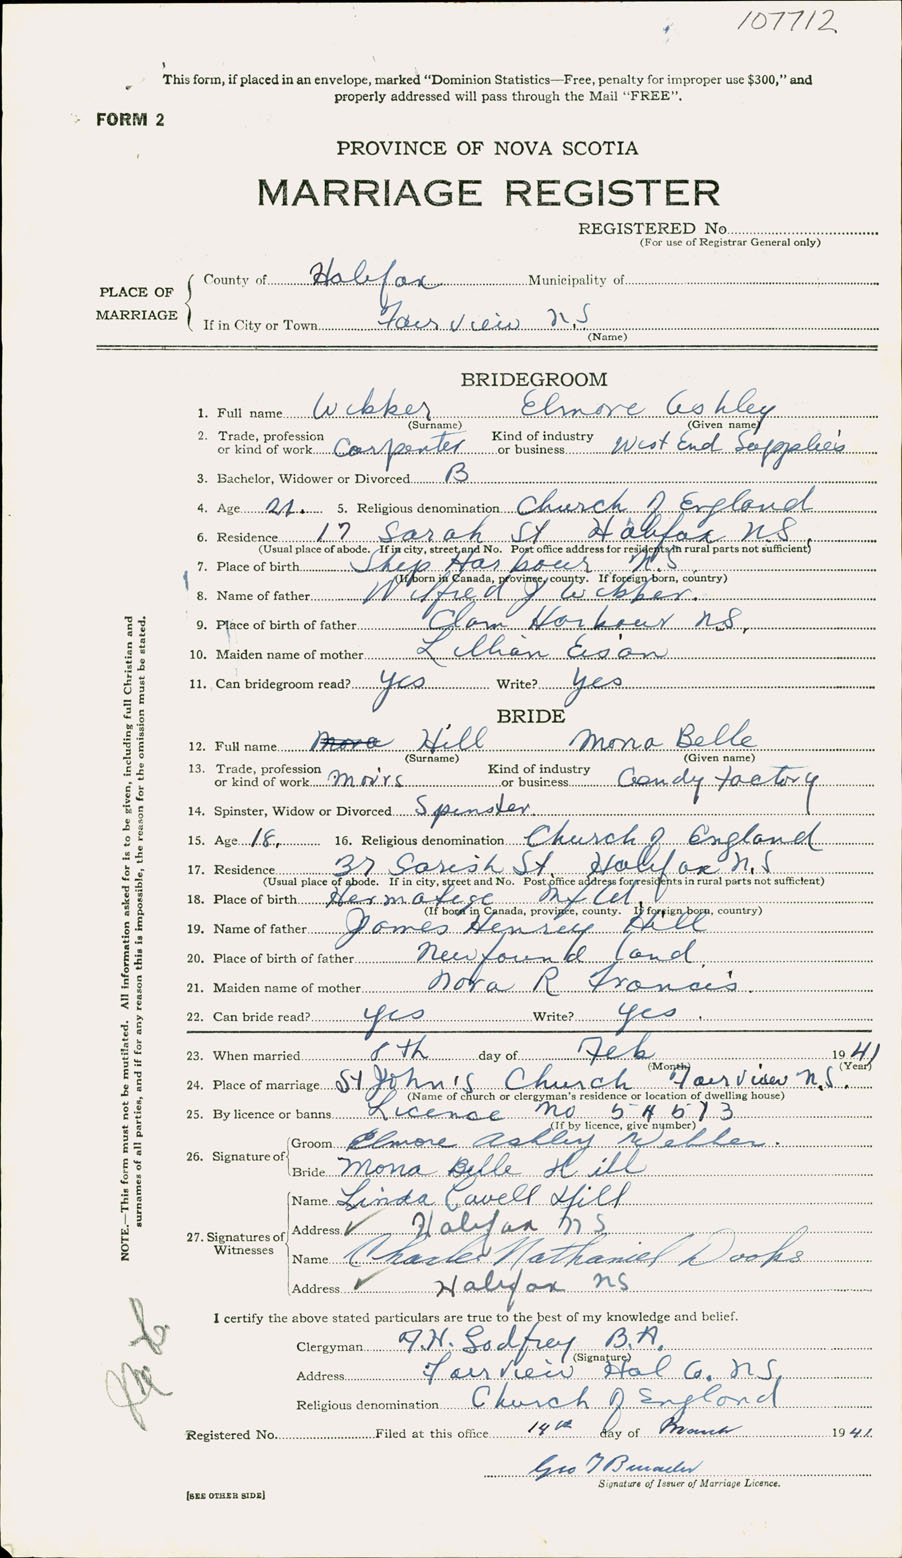 107712
This form, if placed in an envelope, marked "Dominion Statistics—Free, penalty for improper use $300," and
properly addressed will pass through the Mail "FREE".
FORM 2
PROVINCE OF NOVA SCOTIA
MARRIAGE REGISTER
REGISTERED No.
(For use of Registrar General only)
PLACE OF MARRIAGE
County of Halifax Municipality of
If in City or Town Fairview N.S
(Name)
BRIDEGROOM
1. Full name Webber Elmore Ashley
(Surname) (Given name)
2. Trade, profession or kind of work Carpenter Kind of industry or business West End Supplies
3. Bachelor, Widower or Divorced B
4. Age 21. 5. Religious denomination Church of England
6. Residence 17 Sarah St Halifax N.S.
(Usual place of abode. If in city, street and No. Post office address for residents in rural parts not sufficient)
7. Place of birth Ship Harbour N.S.
(If born in Canada, province, county. If foreign born, country)
8. Name of father Wilfred J Webber.
9. Place of birth of father Clam Harbour N.S.
10. Maiden name of mother Lillian Eisan
11. Can bridegroom read? yes Write? yes
BRIDE
12. Full name Mona Hill Mona Belle
(Surname) (Given name)
13. Trade, profession or kind of work Moirs Kind of industry or business Candy factory
14. Spinster, Widow or Divorced Spinster
15. Age 18. 16. Religious denomination Church of England
17. Residence 37 Sarish St. Halifax N.S
(Usual place of abode. If in city, street and No. Post office address for residents in rural parts not sufficient)
18. Place of birth Hermatige Nfld
(If born in Canada, province, county. If foreign born, country)
19. Name of father James Henrey Hill
20. Place of birth of father Newfound land
21. Maiden name of mother Nora R Francis.
22. Can bride read? yes Write? yes.
23. When married 8th day of Feb 1941
(Month) (Year)
24. Place of marriage St John's Church Fairview N.S.
(Name of church or clergyman's residence or location of dwelling house)
25. By licence or banns Licence No
(If by licence, give number)
26. Signature of Groom Elmore Ashley Webber.
Bride Mona Belle Hill
27. Signatures of Witnesses
Name Linda Cavell Hill
Address Halifax NS
Name Charles Nathaniel
Address Halifax NS
I certify the above stated particulars are true to the best of my knowledge and belief.
Clergyman Godfrey B.A.
(Signature)
Address Fairview Hal Co. N.S.
Religious denomination Church of England
Registered No. Filed at this office 14th day of March 1941.
Geo T
Signature of Issuer of Marriage Licence.
[SEE OTHER SIDE]
NOTE.—This form must not be mutilated. All information asked for is to be given, including full Christian and
surnames of all parties, and if for any reason this is impossible, the reason for the omission must be stated.